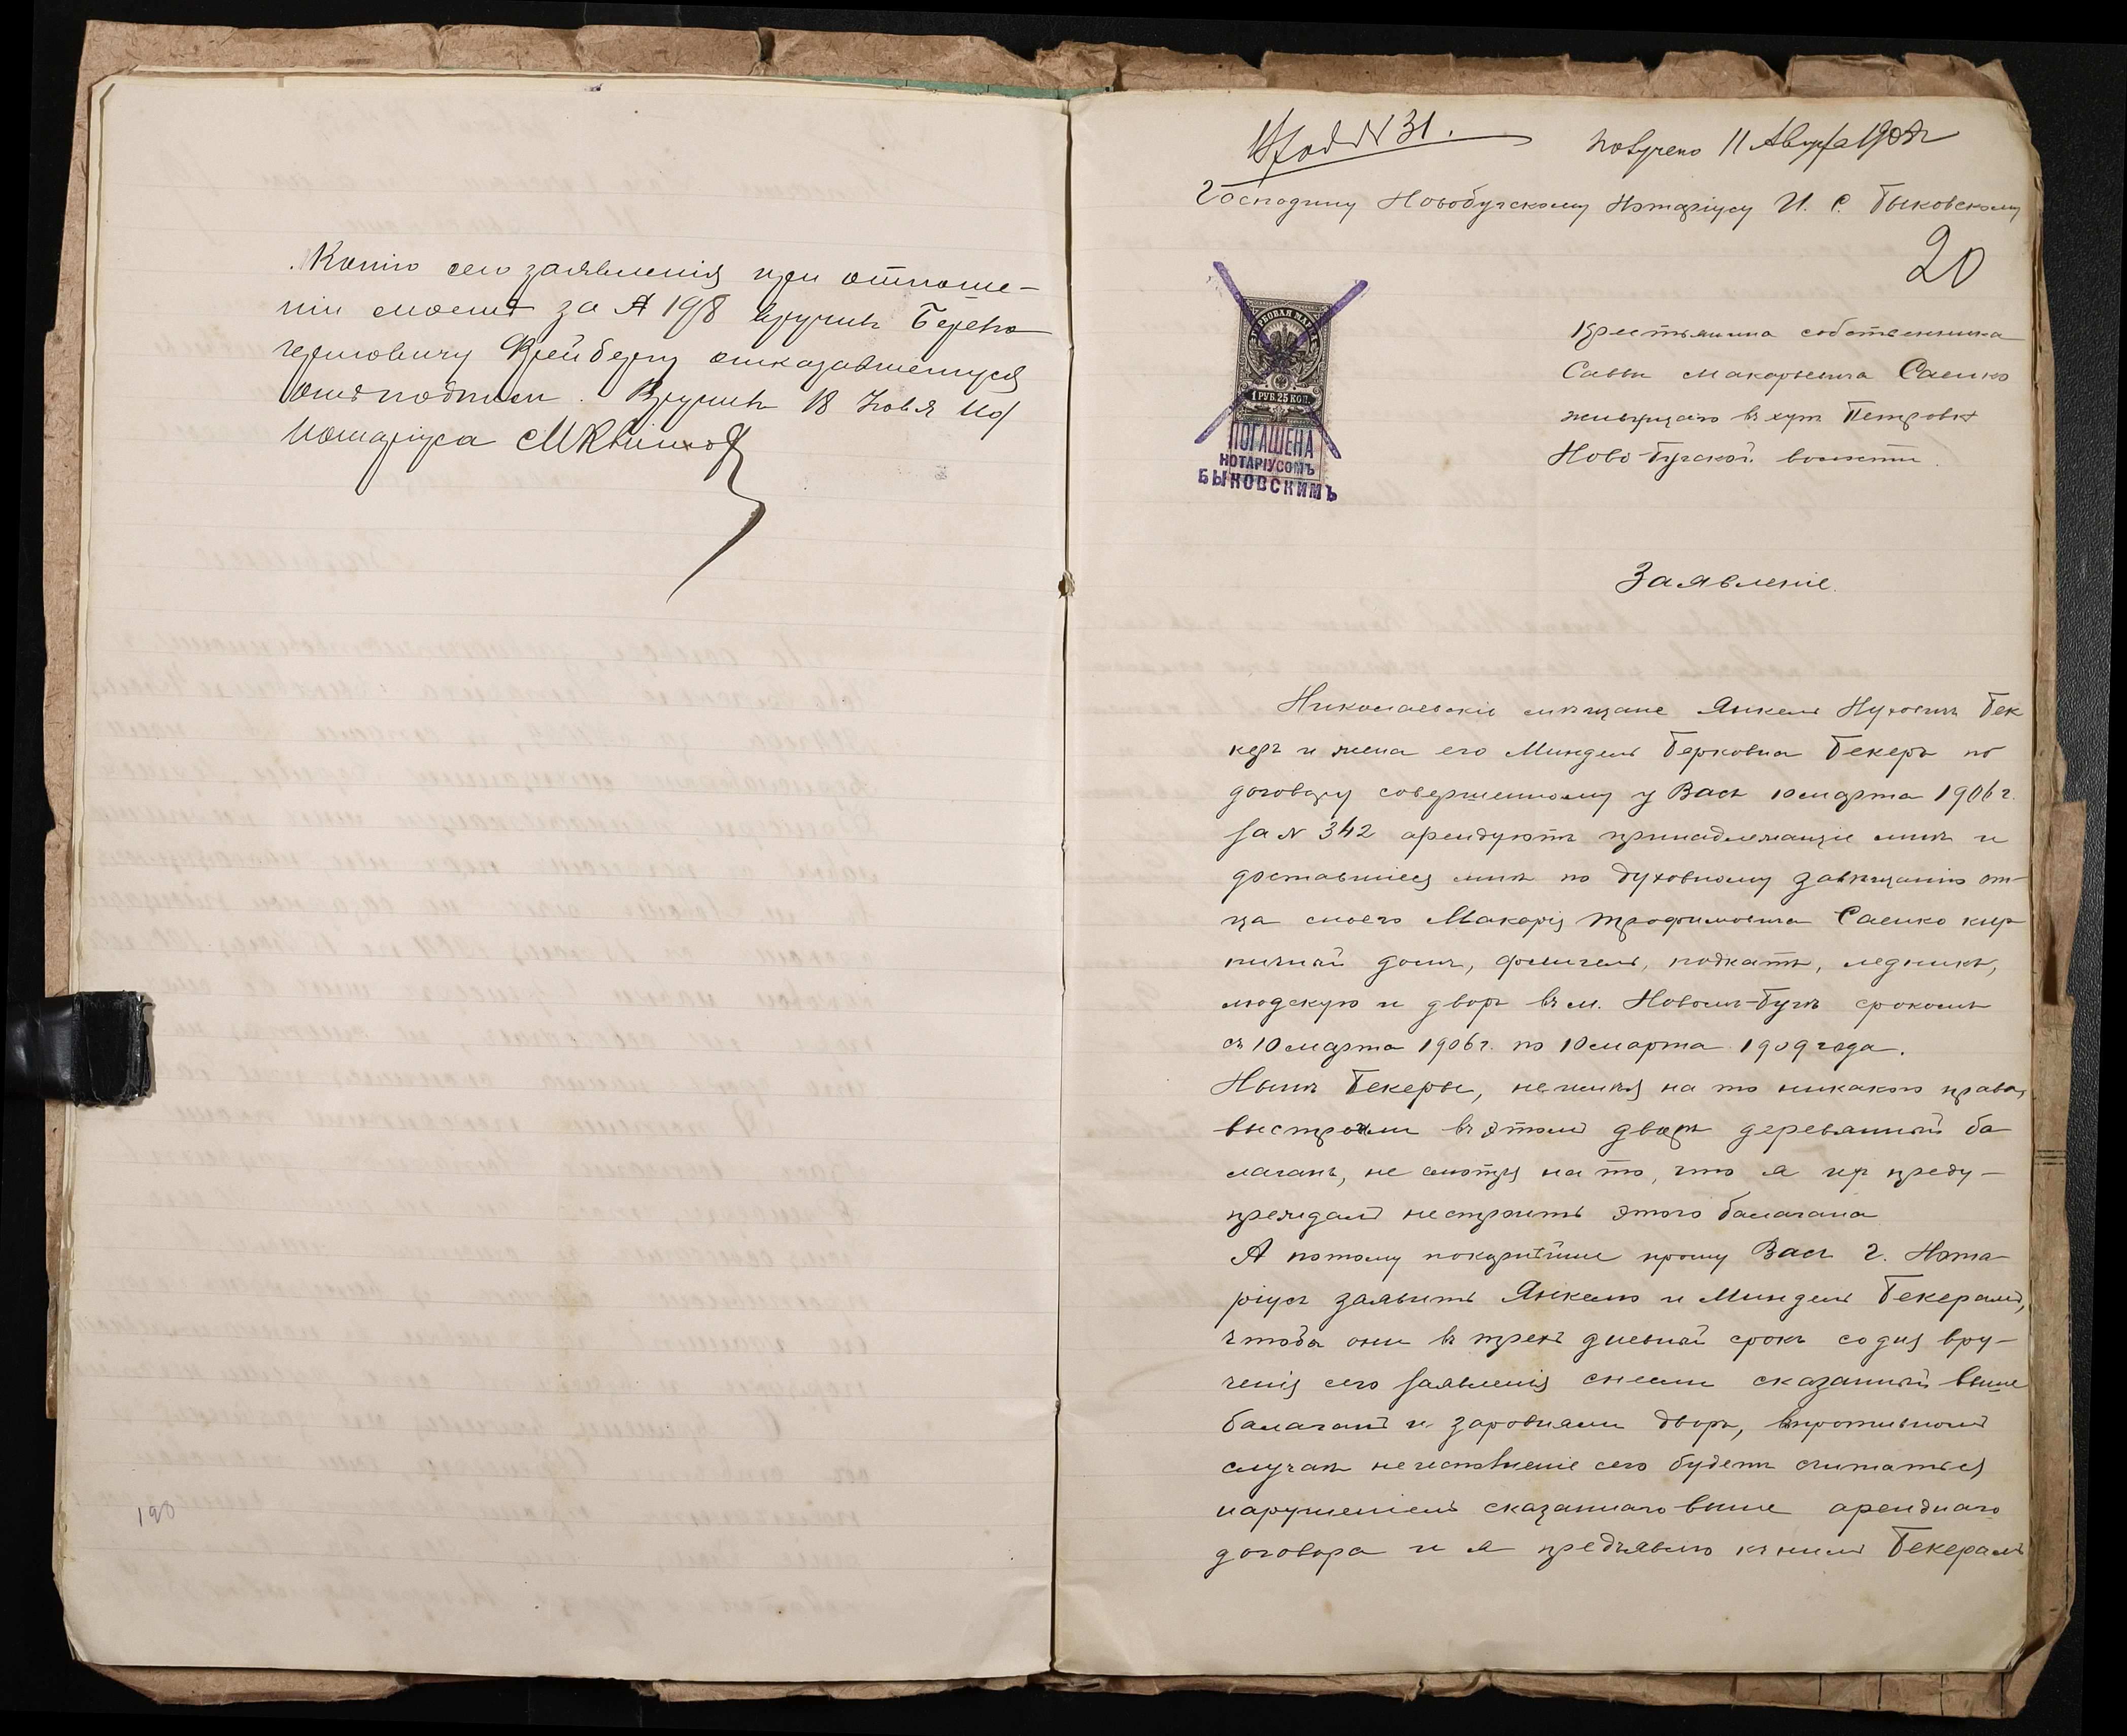 Копію сего заявленія при отноше-
ніи моемъ за № 198 вручилъ
Фрейбергу отказавшемуся
отъ подписи. Вручилъ 18
Нотаріуса
190
№ 31.
Получено 11 Августа
Господину Новобугскому Нотаріусу И. С. Быковскому
20
ГЕРБОВАЯ МАРКА
1 РУБ. 25 КОП.
ПОГАШЕНА
НОТАРІУСОМЪ
БЫКОВСКИМЪ
Крестьянина собственника
Саввы Макарьевича Саенко
живущаго въ хут. Петровкѣ
Ново Бугской волости.
Заявленіе.
Николаевскіе мѣщане Янкель Нуховичъ Бек
керъ и жена его Миндель Берковна Бекеръ по
договору совершенному у Васъ 10 марта 1906 г.
за № 342 арендуютъ принадлежащіе мнѣ и
доставшіеся мнѣ по духовному завѣщанію от-
ца моего Макарія Трофимовича Саенко кир
пичный домъ, флигель, подкатъ, ледникъ,
людскую и дворъ въ м. Новомъ-Бугѣ срокомъ
съ 10 марта 1906 г. по 10 марта 1909 года.
Нынѣ Бекеры, не имѣя на то никакого права,
выстроили въ этомъ дворѣ деревянный ба
лаганъ, не смотря на то, что я ихъ преду-
преждалъ не строить этого балагана
А потому покорнѣйше прошу Васъ г. Нота-
ріусъ заявить Янкелю и Миндель Бекерамъ,
чтобы они въ трехъ дневный срокъ со дня вру-
ченія сего заявленія снесли сказанный выше
балаганъ и заровняли дворъ, въ противномъ
случаѣ не исполненіе сего будетъ считаться
нарушеніемъ сказаннаго выше аренднаго
договора и я предъявлю къ нимъ Бекерамъ